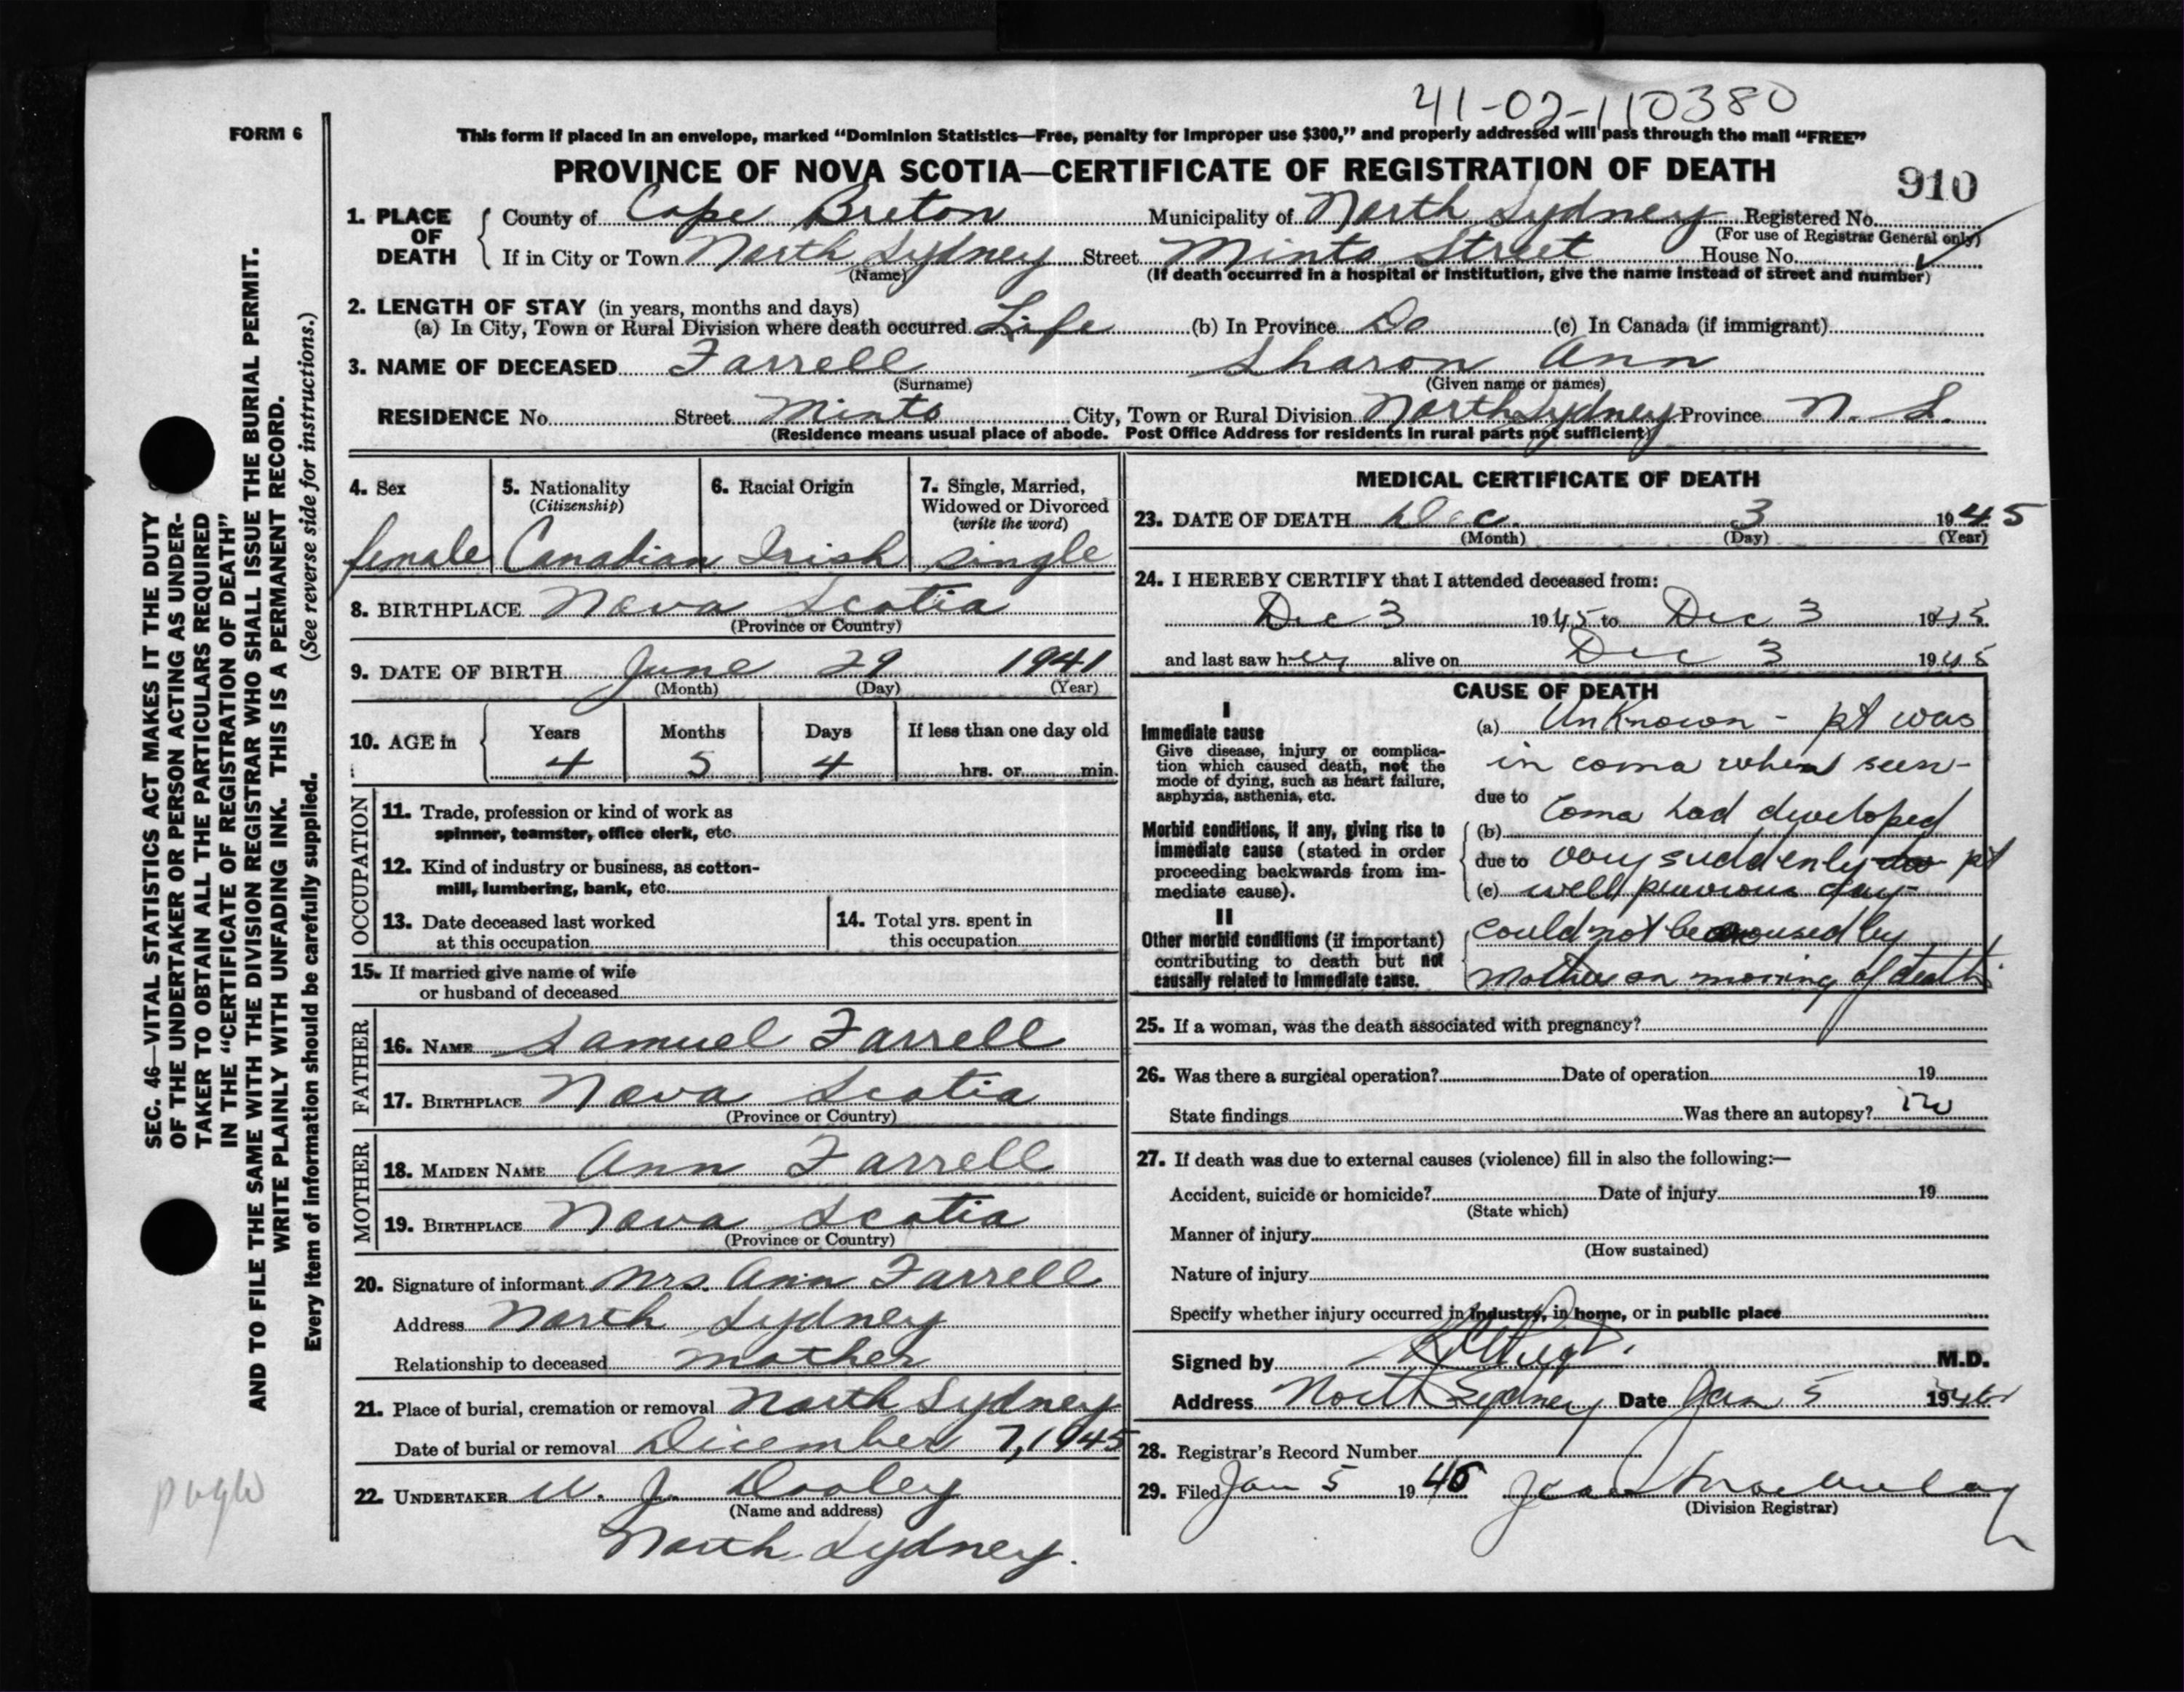 41-02-110380
FORM 6
This form if placed in an envelope, marked "Dominion Statistics—Free, penalty for improper use $300," and properly addressed will pass through the mail "FREE"
PROVINCE OF NOVA SCOTIA—CERTIFICATE OF REGISTRATION OF DEATH
910
1. PLACE OF DEATH
County of Cape Breton Municipality of North Sydney Registered No.
(For use of Registrar General only)
If in City or Town North Sydney Street Minto Street House No.
(Name) (If death occurred in a hospital or institution, give the name instead of street and number)
2. LENGTH OF STAY (in years, months and days)
(a) In City, Town or Rural Division where death occurred Life (b) In Province Do (c) In Canada (if immigrant)
3. NAME OF DECEASED Farrell Sharon Ann
(Surname) (Given name or names)
RESIDENCE No. Street Minto City, Town or Rural Division North Sydney Province N. S.
(Residence means usual place of abode. Post Office Address for residents in rural parts not sufficient)
4. Sex 5. Nationality 6. Racial Origin 7. Single, Married,
(Citizenship) Widowed or Divorced
(write the word)
female Canadian Irish single
8. BIRTHPLACE Nova Scotia
(Province or Country)
9. DATE OF BIRTH June 29 1941
(Month) (Day) (Year)
10. AGE in Years Months Days If less than one day old
4 5 4 hrs. or min.
OCCUPATION
11. Trade, profession or kind of work as
spinner, teamster, office clerk, etc.
12. Kind of industry or business, as cotton-
mill, lumbering, bank, etc.
13. Date deceased last worked 14. Total yrs. spent in
at this occupation this occupation
15. If married give name of wife
or husband of deceased
FATHER
16. NAME Samuel Farrell
17. BIRTHPLACE Nova Scotia
(Province or Country)
MOTHER
18. MAIDEN NAME Ann Farrell
19. BIRTHPLACE Nova Scotia
(Province or Country)
20. Signature of informant Mrs. Ann Farrell
Address North Sydney
Relationship to deceased mother
21. Place of burial, cremation or removal North Sydney
Date of burial or removal December 7, 1945
22. UNDERTAKER W. J. Dooley
(Name and address)
North Sydney.
MEDICAL CERTIFICATE OF DEATH
23. DATE OF DEATH Dec. 3 1945
(Month) (Day) (Year)
24. I HEREBY CERTIFY that I attended deceased from:
Dec 3 1945 to Dec 3 1945
and last saw her alive on Dec 3 1945
CAUSE OF DEATH
I
Immediate cause
Give disease, injury or complica-
tion which caused death, not the
mode of dying, such as heart failure,
asphyxia, asthenia, etc.
(a) Unknown - pt was
in coma when seen -
due to Coma had developed
Morbid conditions, if any, giving rise to
immediate cause (stated in order
proceeding backwards from im-
mediate cause).
(b)
due to very suddenly pt
(c) well previous day -
II
Other morbid conditions (if important)
contributing to death but not
causally related to immediate cause.
could not be aroused by
mother on morning of death.
25. If a woman, was the death associated with pregnancy?
26. Was there a surgical operation? Date of operation 19
State findings Was there an autopsy? no
27. If death was due to external causes (violence) fill in also the following:—
Accident, suicide or homicide? Date of injury 19
(State which)
Manner of injury
(How sustained)
Nature of injury
Specify whether injury occurred in industry, in home, or in public place
Signed by M.D.
Address North Sydney Date Jan 5 1946
28. Registrar's Record Number
29. Filed Jan 5 1946
(Division Registrar)
SEC. 46—VITAL STATISTICS ACT MAKES IT THE DUTY
OF THE UNDERTAKER OR PERSON ACTING AS UNDER-
TAKER TO OBTAIN ALL THE PARTICULARS REQUIRED
IN THE "CERTIFICATE OF REGISTRATION OF DEATH"
AND TO FILE THE SAME WITH THE DIVISION REGISTRAR WHO SHALL ISSUE THE BURIAL PERMIT.
WRITE PLAINLY WITH UNFADING INK. THIS IS A PERMANENT RECORD.
Every item of information should be carefully supplied. (See reverse side for instructions.)